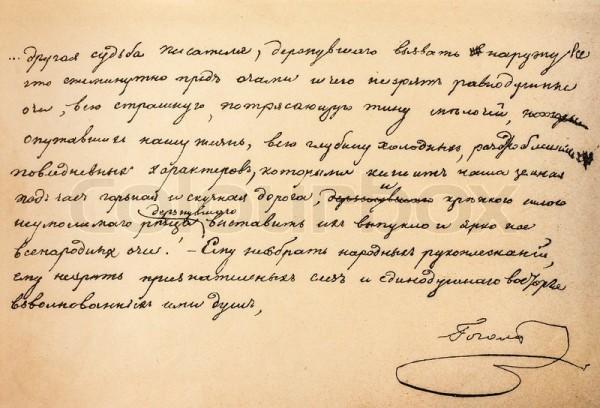 ... другая судьба писателя, дерзнувшаго вызвать наружу все
что ежеминутно предъ очами и чего не зрятъ равнодушные
очи, всю страшную, потрясающую тину мелочей,
опутавшихъ нашу жизнь, всю глубину холодныхъ, раздробленныхъ
повседневныхъ характеровъ, которыми кишитъ наша земная
подъ часъ горькая и скучная дорога, и дерзнувшаго крѣпкою силою
неумолимаго рѣзца дерзнувшаго выставить ихъ выпукло и ярко на
всенародныя очи! — Ему не собрать народныхъ рукоплесканій,
ему не зрѣть признательныхъ слезъ и единодушнаго восторга
взволнованныхъ имъ душъ,
Гоголь
colourbox